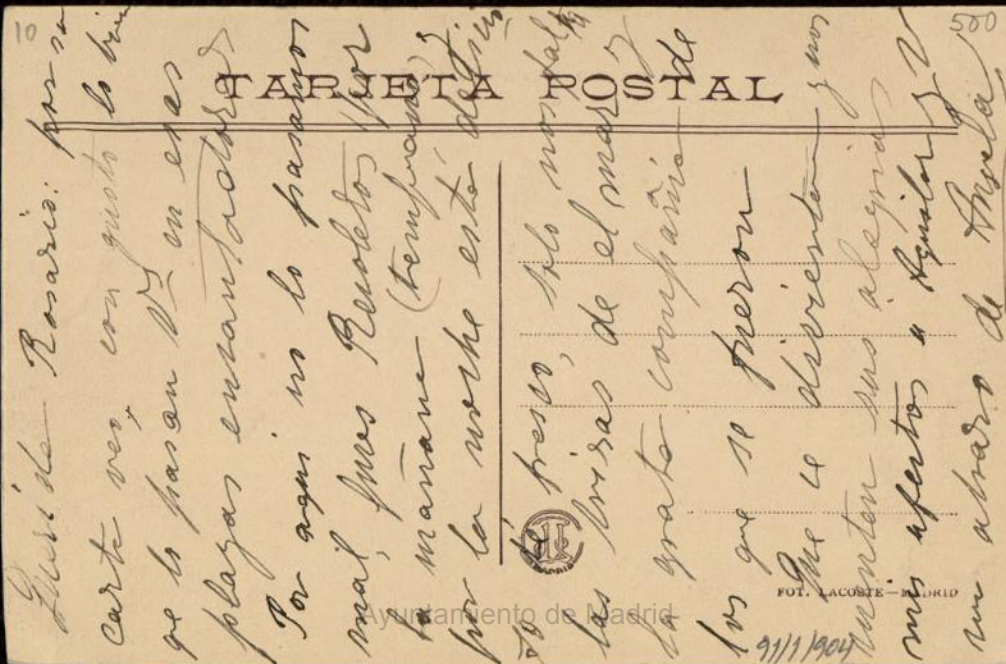 10
500
TARJETA POSTAL
Querida Rosario: por su
carta veo, con gusto lo bien
qe lo pasan Vs en esas
playas encantadoras
Por aqui no lo pasamos
mal, pues Recoletos por
la mañana (temprano) y
por la noche está
fresco, solo nos faltan
las brisas de el mar y
la grata compañia de
los que se fueron
Que se diviertan y nos
sus alegrias
mis afectos a Aguilar y V
un abrazo de Angela
FOT. LACOSTE—MADRID
MADRID
Ayuntamiento de Madrid
91/1/904